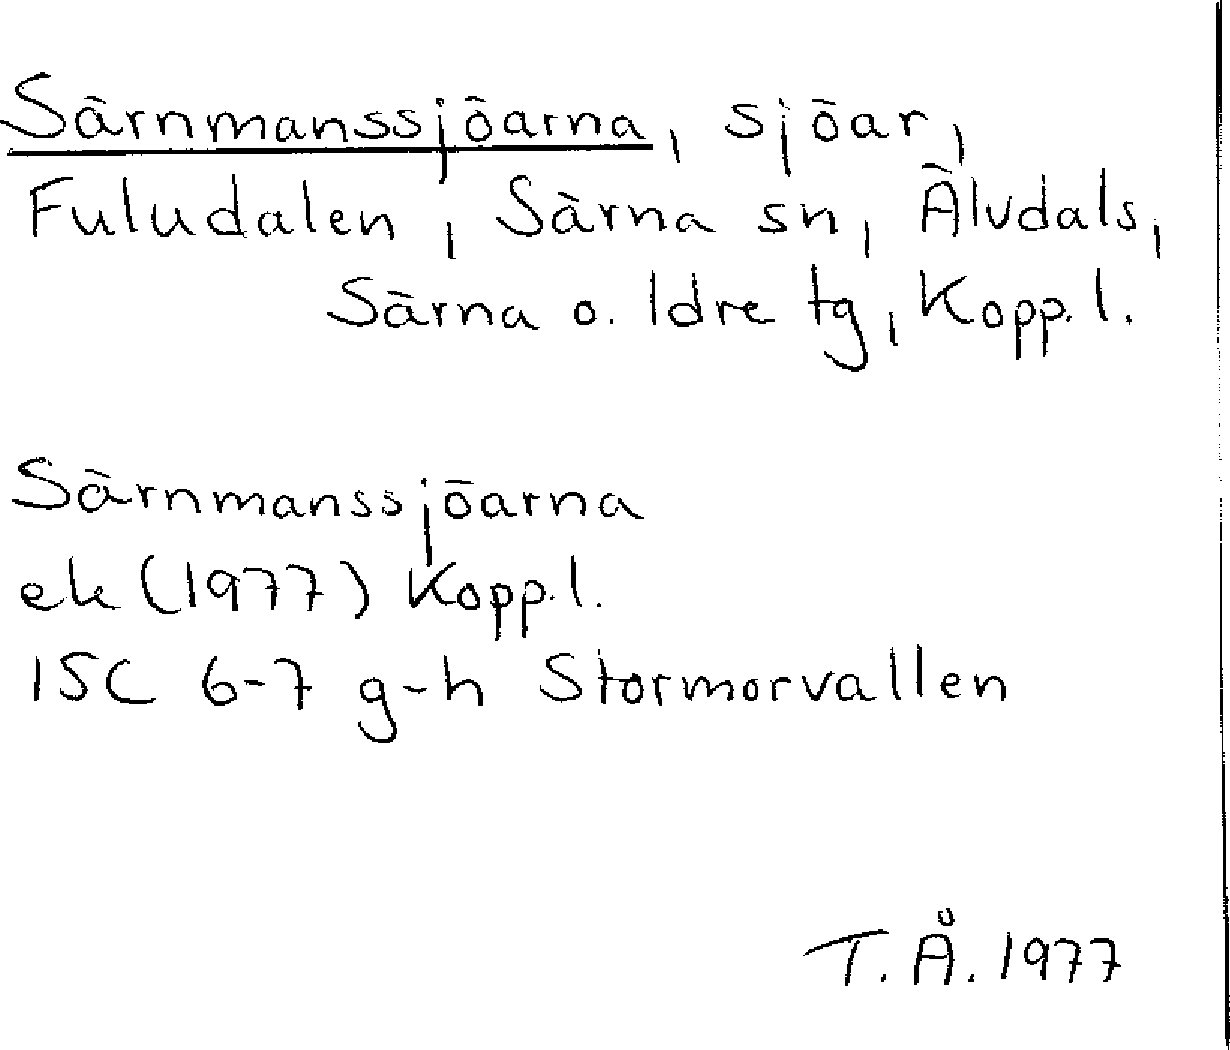 Särnmanssjöarna, sjöar,
Fuludalen, Särna sn, Älvdals,
Särna o. Idre tg, Kopp.l.
Särnmanssjöarna
ek (1977) Kopp.l.
15C 6-7 g-h Stormorvallen
T.Å. 1977